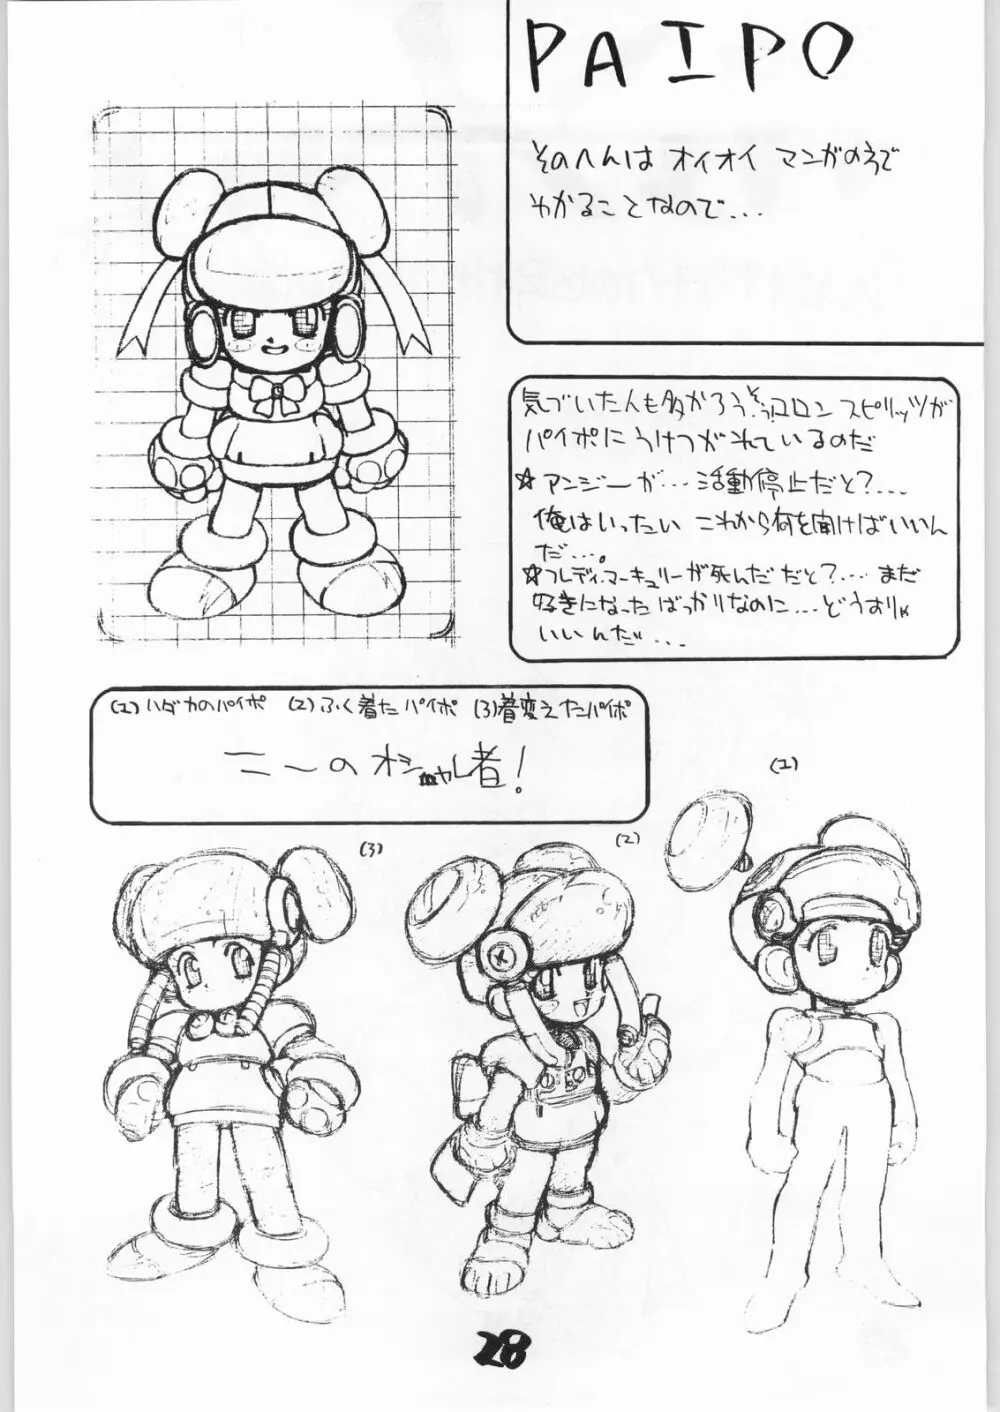 PAIPO
そのへんは オイオイ マンガの方で
わかることなので...
気づいた人も多かろう. そう!コロン スピリッツが
パイポにうけつがれているのだ
☆アンジーが... 活動停止だと?....
俺はいったい これから何を聞けばいいん
だ....。
☆フレディマーキュリーが死んだ だと?.... まだ
好きになったばっかりなのに....どうすりゃ
いいんだ....
(1)ハダカのパイポ (2)ふく着たパイポ (3)着変えたパイポ
ニ〜のオシャレ者!
(1)
(2)
(3)
28